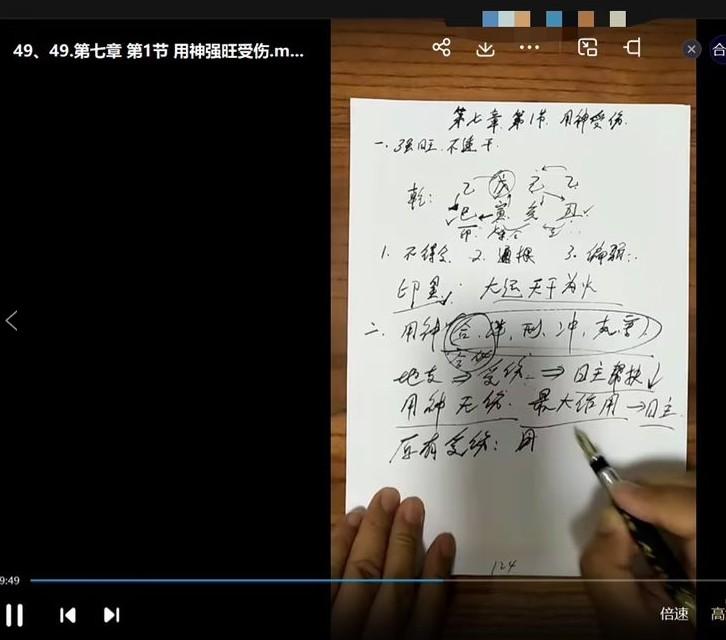 49、49.第七章 第1节 用神强旺受伤.m...
合
第七章 第1节 用神受伤.
一.强旺不逢干
乙 戊 己 乙
乾:
巳 寅 亥 丑
印
1. 不得令 2. 通根 3. 偏弱:
印星 : 大运天干为火
二. 用神(合、 刑、冲、克、害)
合化
地支 ⇒ 受伤 ⇒ 日主帮扶↓
用神无伤. 最大作用→日主
原有受伤: 用
124
9:49
倍速
高